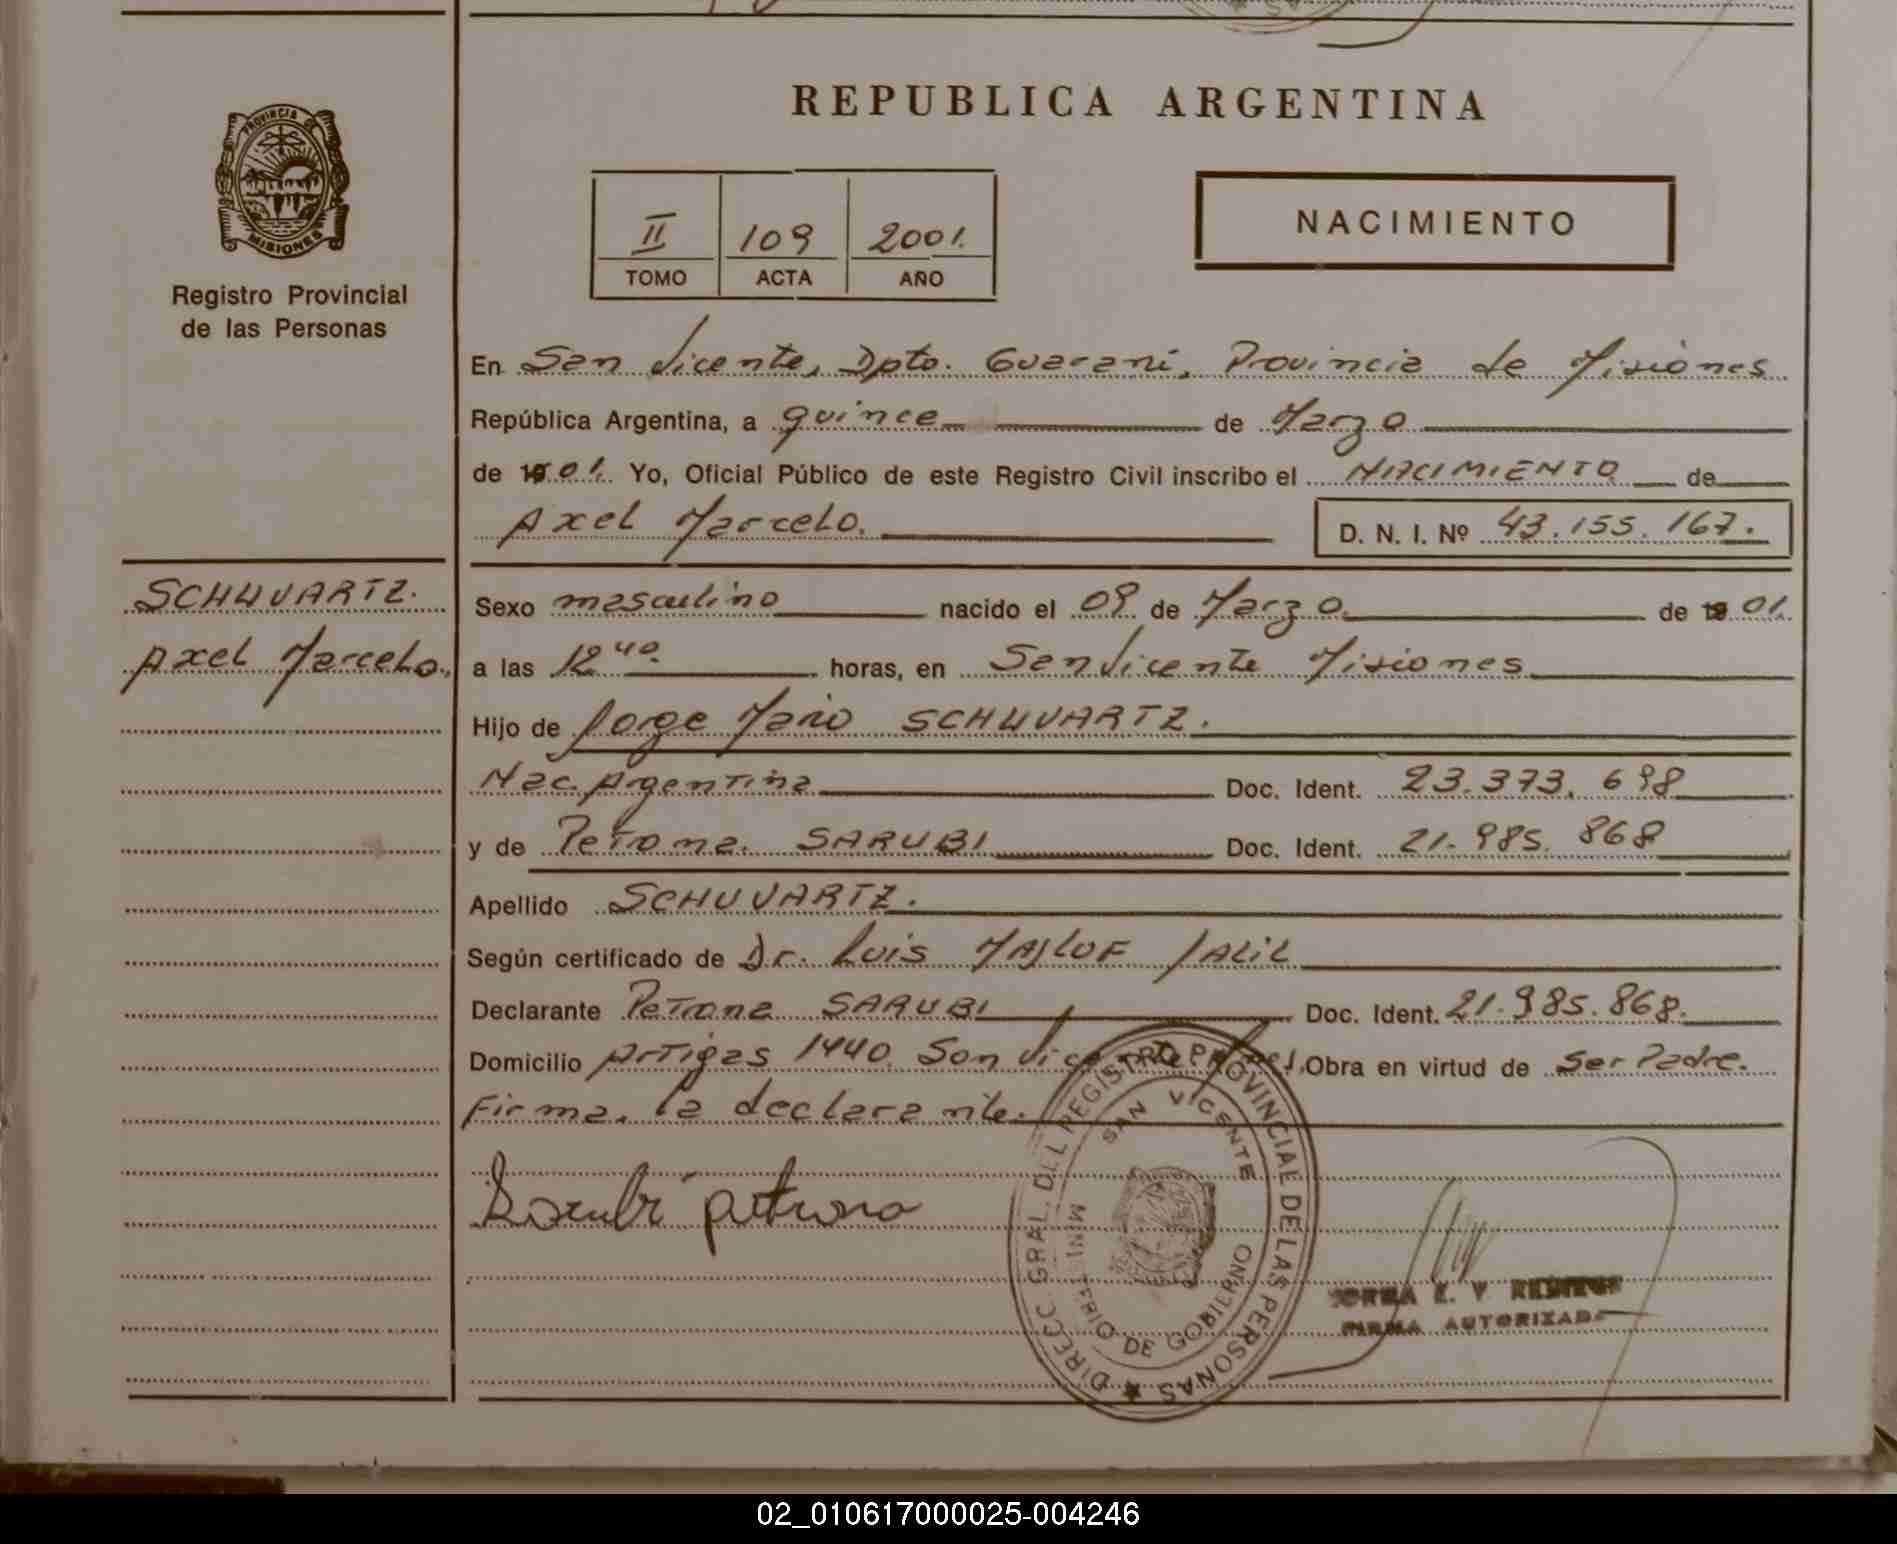 REPUBLICA ARGENTINA
PROVINCIA DE MISIONES
Registro Provincial
de las Personas
II 109 2001.
TOMO ACTA AÑO
NACIMIENTO
En San Vicente, Dpto. Guaraní, Provincia de Misiones
República Argentina, a quince de Marzo
de 01. Yo, Oficial Público de este Registro Civil inscribo el NACIMIENTO de
Axel Marcelo. D. N. I. Nº 43.155.167.
SCHUVARTZ.
Axel Marcelo.
Sexo masculino nacido el 09 de Marzo. de 01.
a las 12 40. horas, en San Vicente Misiones
Hijo de Jorge Mario SCHUVARTZ.
Nac. Argentina Doc. Ident. 23.373.698
y de Petrona. SARUBI Doc. Ident. 21.985.868
Apellido SCHUVARTZ.
Según certificado de Dr. Luis MASLUF JALIL
Declarante Petrona SARUBI Doc. Ident. 21.985.868.
Domicilio Artigas 1440. San Obra en virtud de Ser Padre.
Firma. la declarante.
Sarubi petrona
DIRECC. GRAL. DEL REGISTRO PROVINCIAL DE LAS PERSONAS
SAN VICENTE
MINISTERIO DE GOBIERNO
E. V.
FIRMA AUTORIZADA
02_010617000025-004246